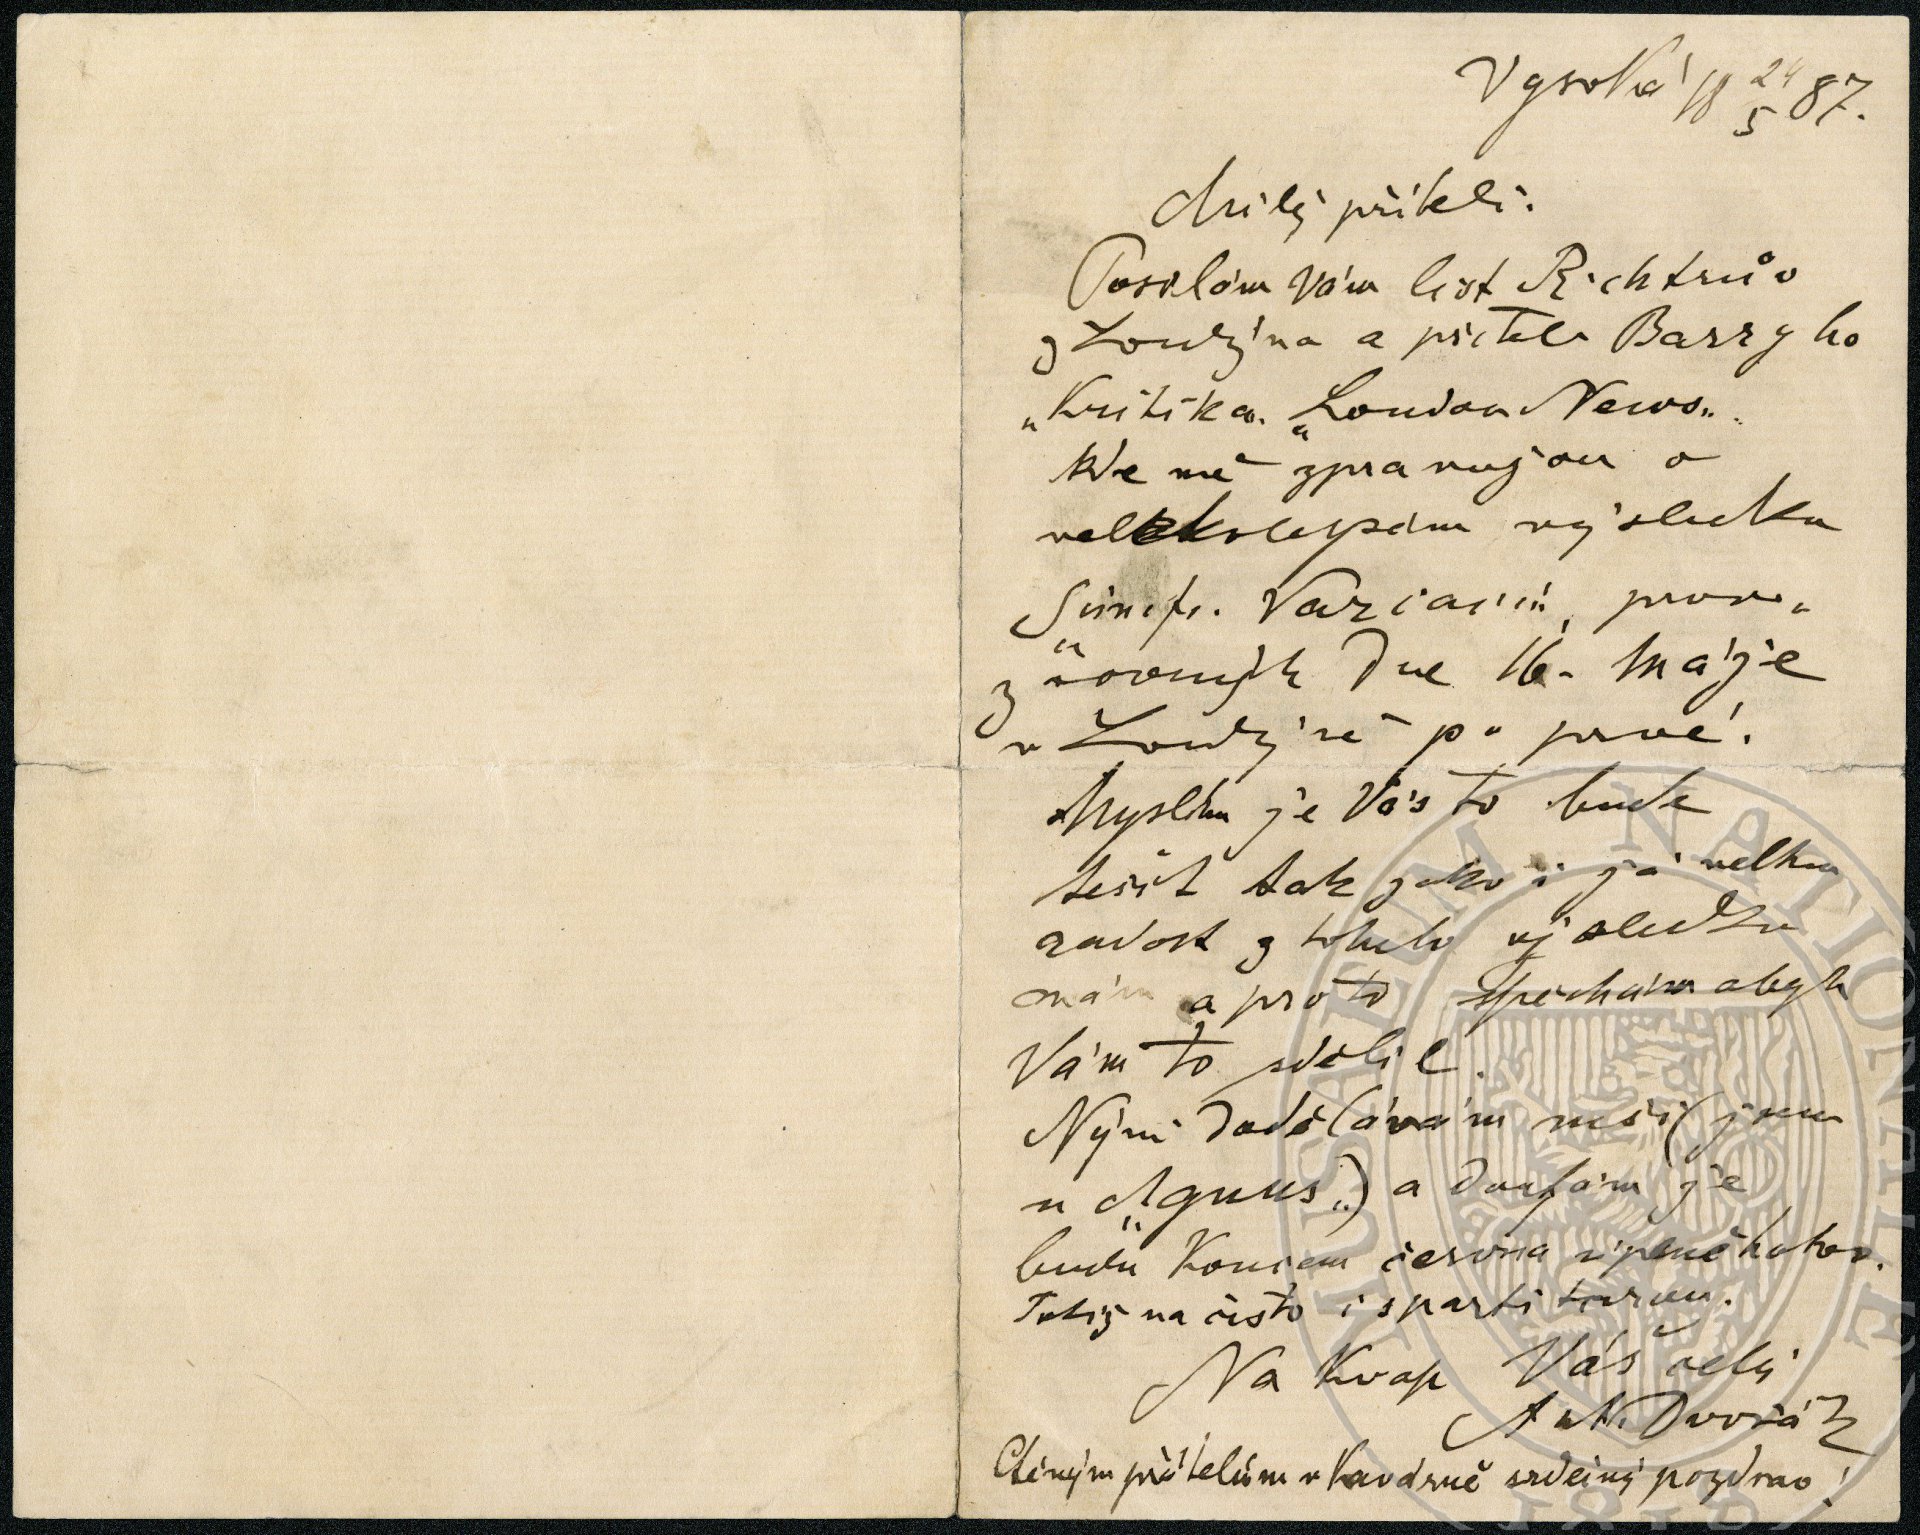 Vysoká 18 24/5 87.
Milý příteli.
Posílám Vám list Richtrův
z Londýna a přítele Barryho
„kritika „London News„
kde mě zpravujou o
velkolepém výsledku
Simf. Variací, provo„
„zovaných dne 16. máje
v Londýně po prvé!
Myslím že Vás to bude
tešit tak jako i já velkou
radost z tohoto výsledku
mám a proto spěchám abych
Vám to sdělil.
Nýní dodělávám mši (jsem
u „Agnus„) a doufám že
budu koncem června úplně hotov.
Totiž na čisto i s partiturou.
Na kvap Váš celý
Ant. Dvořák
Cténým přátelům v Kavárně srdečný pozdrav!
MUSAEUM NATIONALE
1818